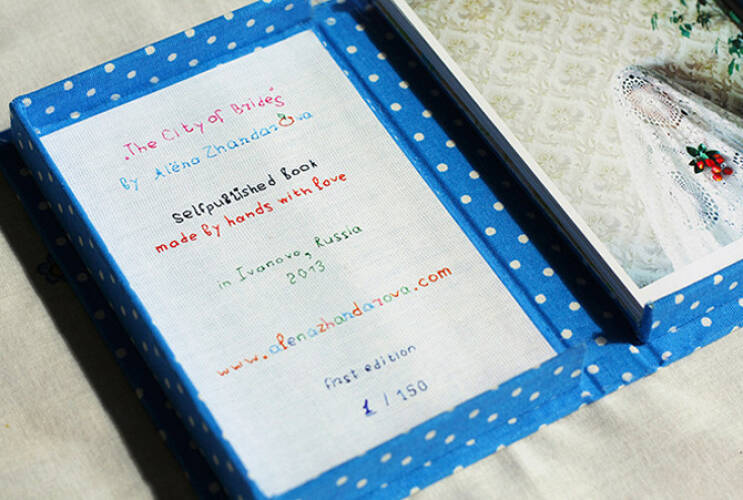 The City of Bride's
by Alёna Zhandarova
Selfpublished Book
made by hands with love
in Ivanovo, Russia
2013
www.alenazhandarova.com
first edition
1 / 150